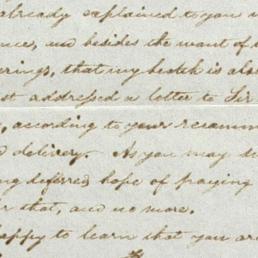 already explained to you
and besides the want of
that my health is also
addressed a letter to Sir
according to your recomm
delivery. As you may
deferred hope of paying
that, and no more.
happy to learn that you are